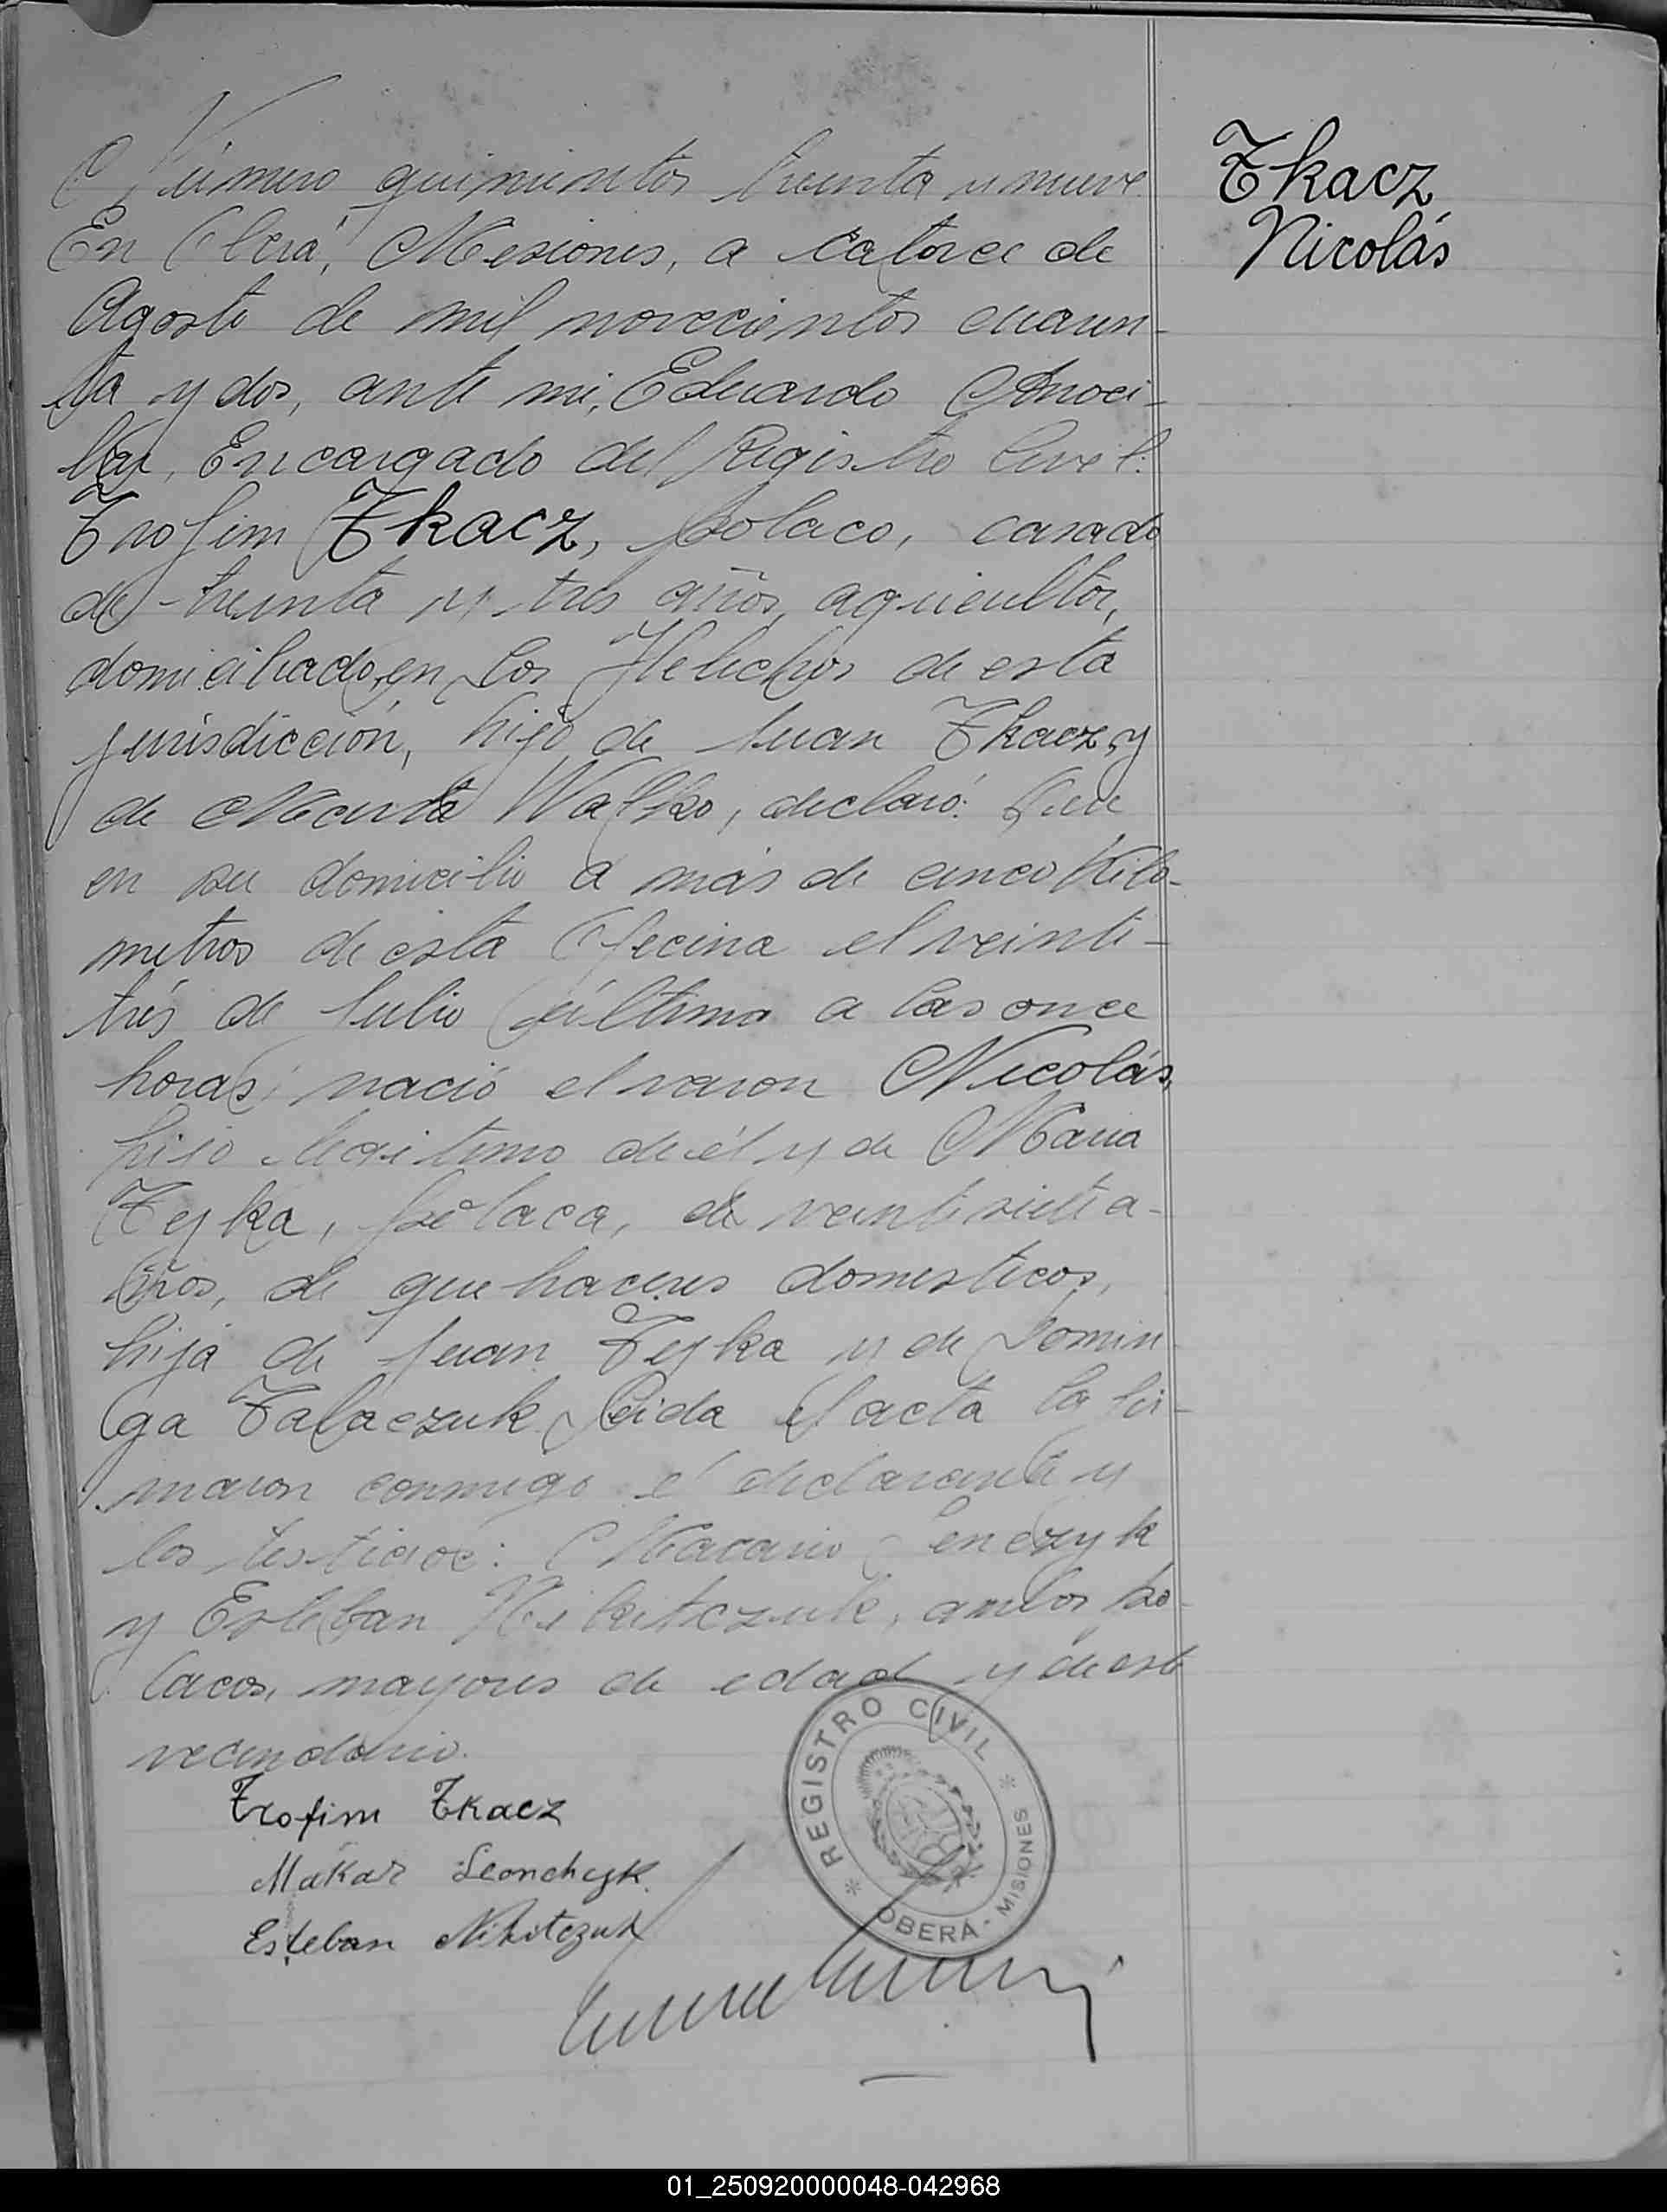 Número quinientos treinta y nueve
En Oberá, Misiones, a catorce de
Agosto de mil novecientos cuaren-
ta y dos, ante mi, Eduardo
Encargado del Registro Civil:
Trofim Tkacz, polaco, casado
de treinta y tres años, agricultor,
domiciliado en Los Helechos de esta
jurisdicción, hijo de Juan Tkacz y
de Walko, declaró: Que
en su domicilio a más de cinco kiló-
metros de esta Oficina el veinti-
trés de Julio último a las once
horas nació el varon Nicolás,
hijo legitimo de él y de Maria
Tejka, polaca, de veintisiete a-
ños, de quehaceres domesticos,
hija de Juan Tejka y de Domin-
ga Talaczuk. Leida el acta la fir-
maron conmigo el declarante y
los testigos: Macario Lenczyk
y Esteban Nikitczuk, ambos po-
lacos, mayores de edad y de este
vecindario.
Trofim Tkacz
Makar Leonchyk.
Esteban Nikitczuk
REGISTRO CIVIL
OBERÁ - MISIONES
Tkacz
Nicolás
01_250920000048-042968